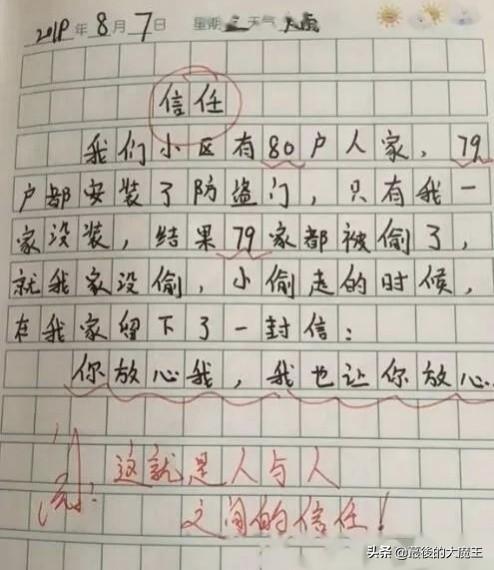 2019年8月7日 星期三 天气 大雨
信任
我们小区有80户人家，79
户都安装了防盗门，只有我一
家没装，结果79家都被偷了，
就我家没偷，小偷走的时候，
在我家留下了一封信：
你放心我，我也让你放心。
这就是人与人
之间的信任！
头条 @最後的大魔王